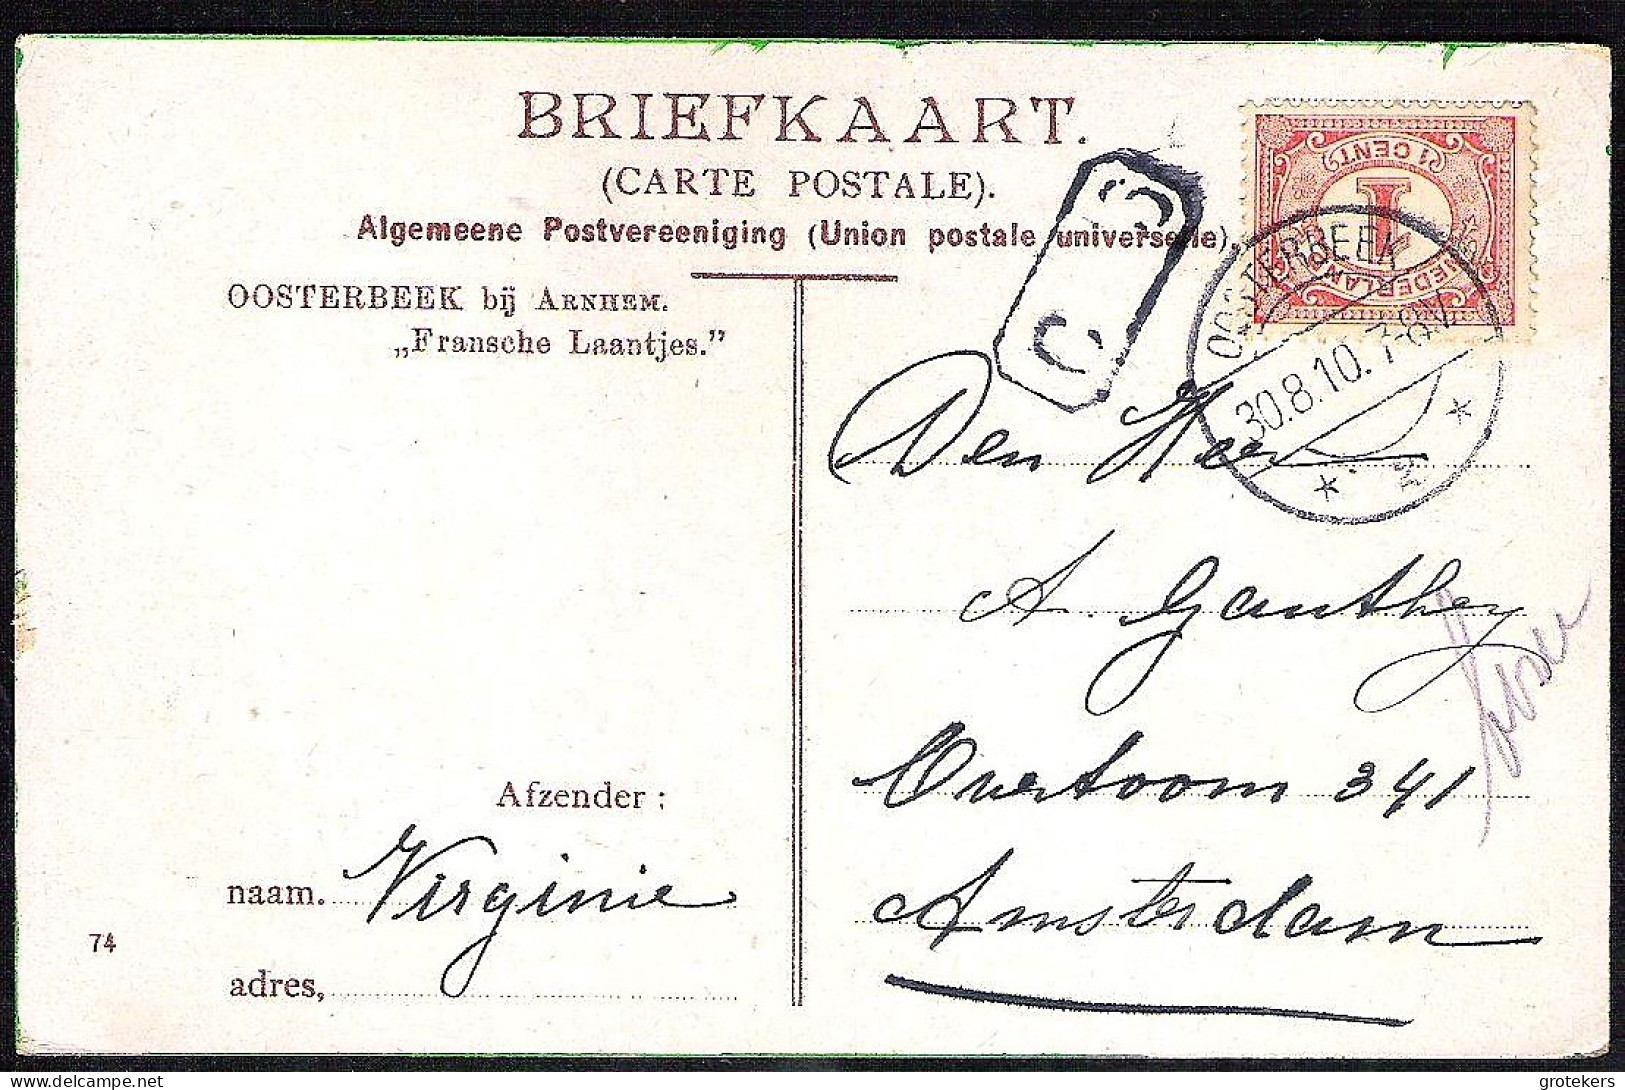 BRIEFKAART.
(CARTE POSTALE).
Algemeene Postvereeniging (Union postale universelle).
OOSTERBEEK bij ARNHEM.
„Fransche Laantjes."
1 CENT
1
NEDERLAND
OOSTERBEEK
30.8.10.7-8V.
Den Heer
A. Ganthey
Overtoom 341
Amsterdam
Afzender:
naam. Virginie
74
adres,
© postzegelsite-delcampe.net
grotekers